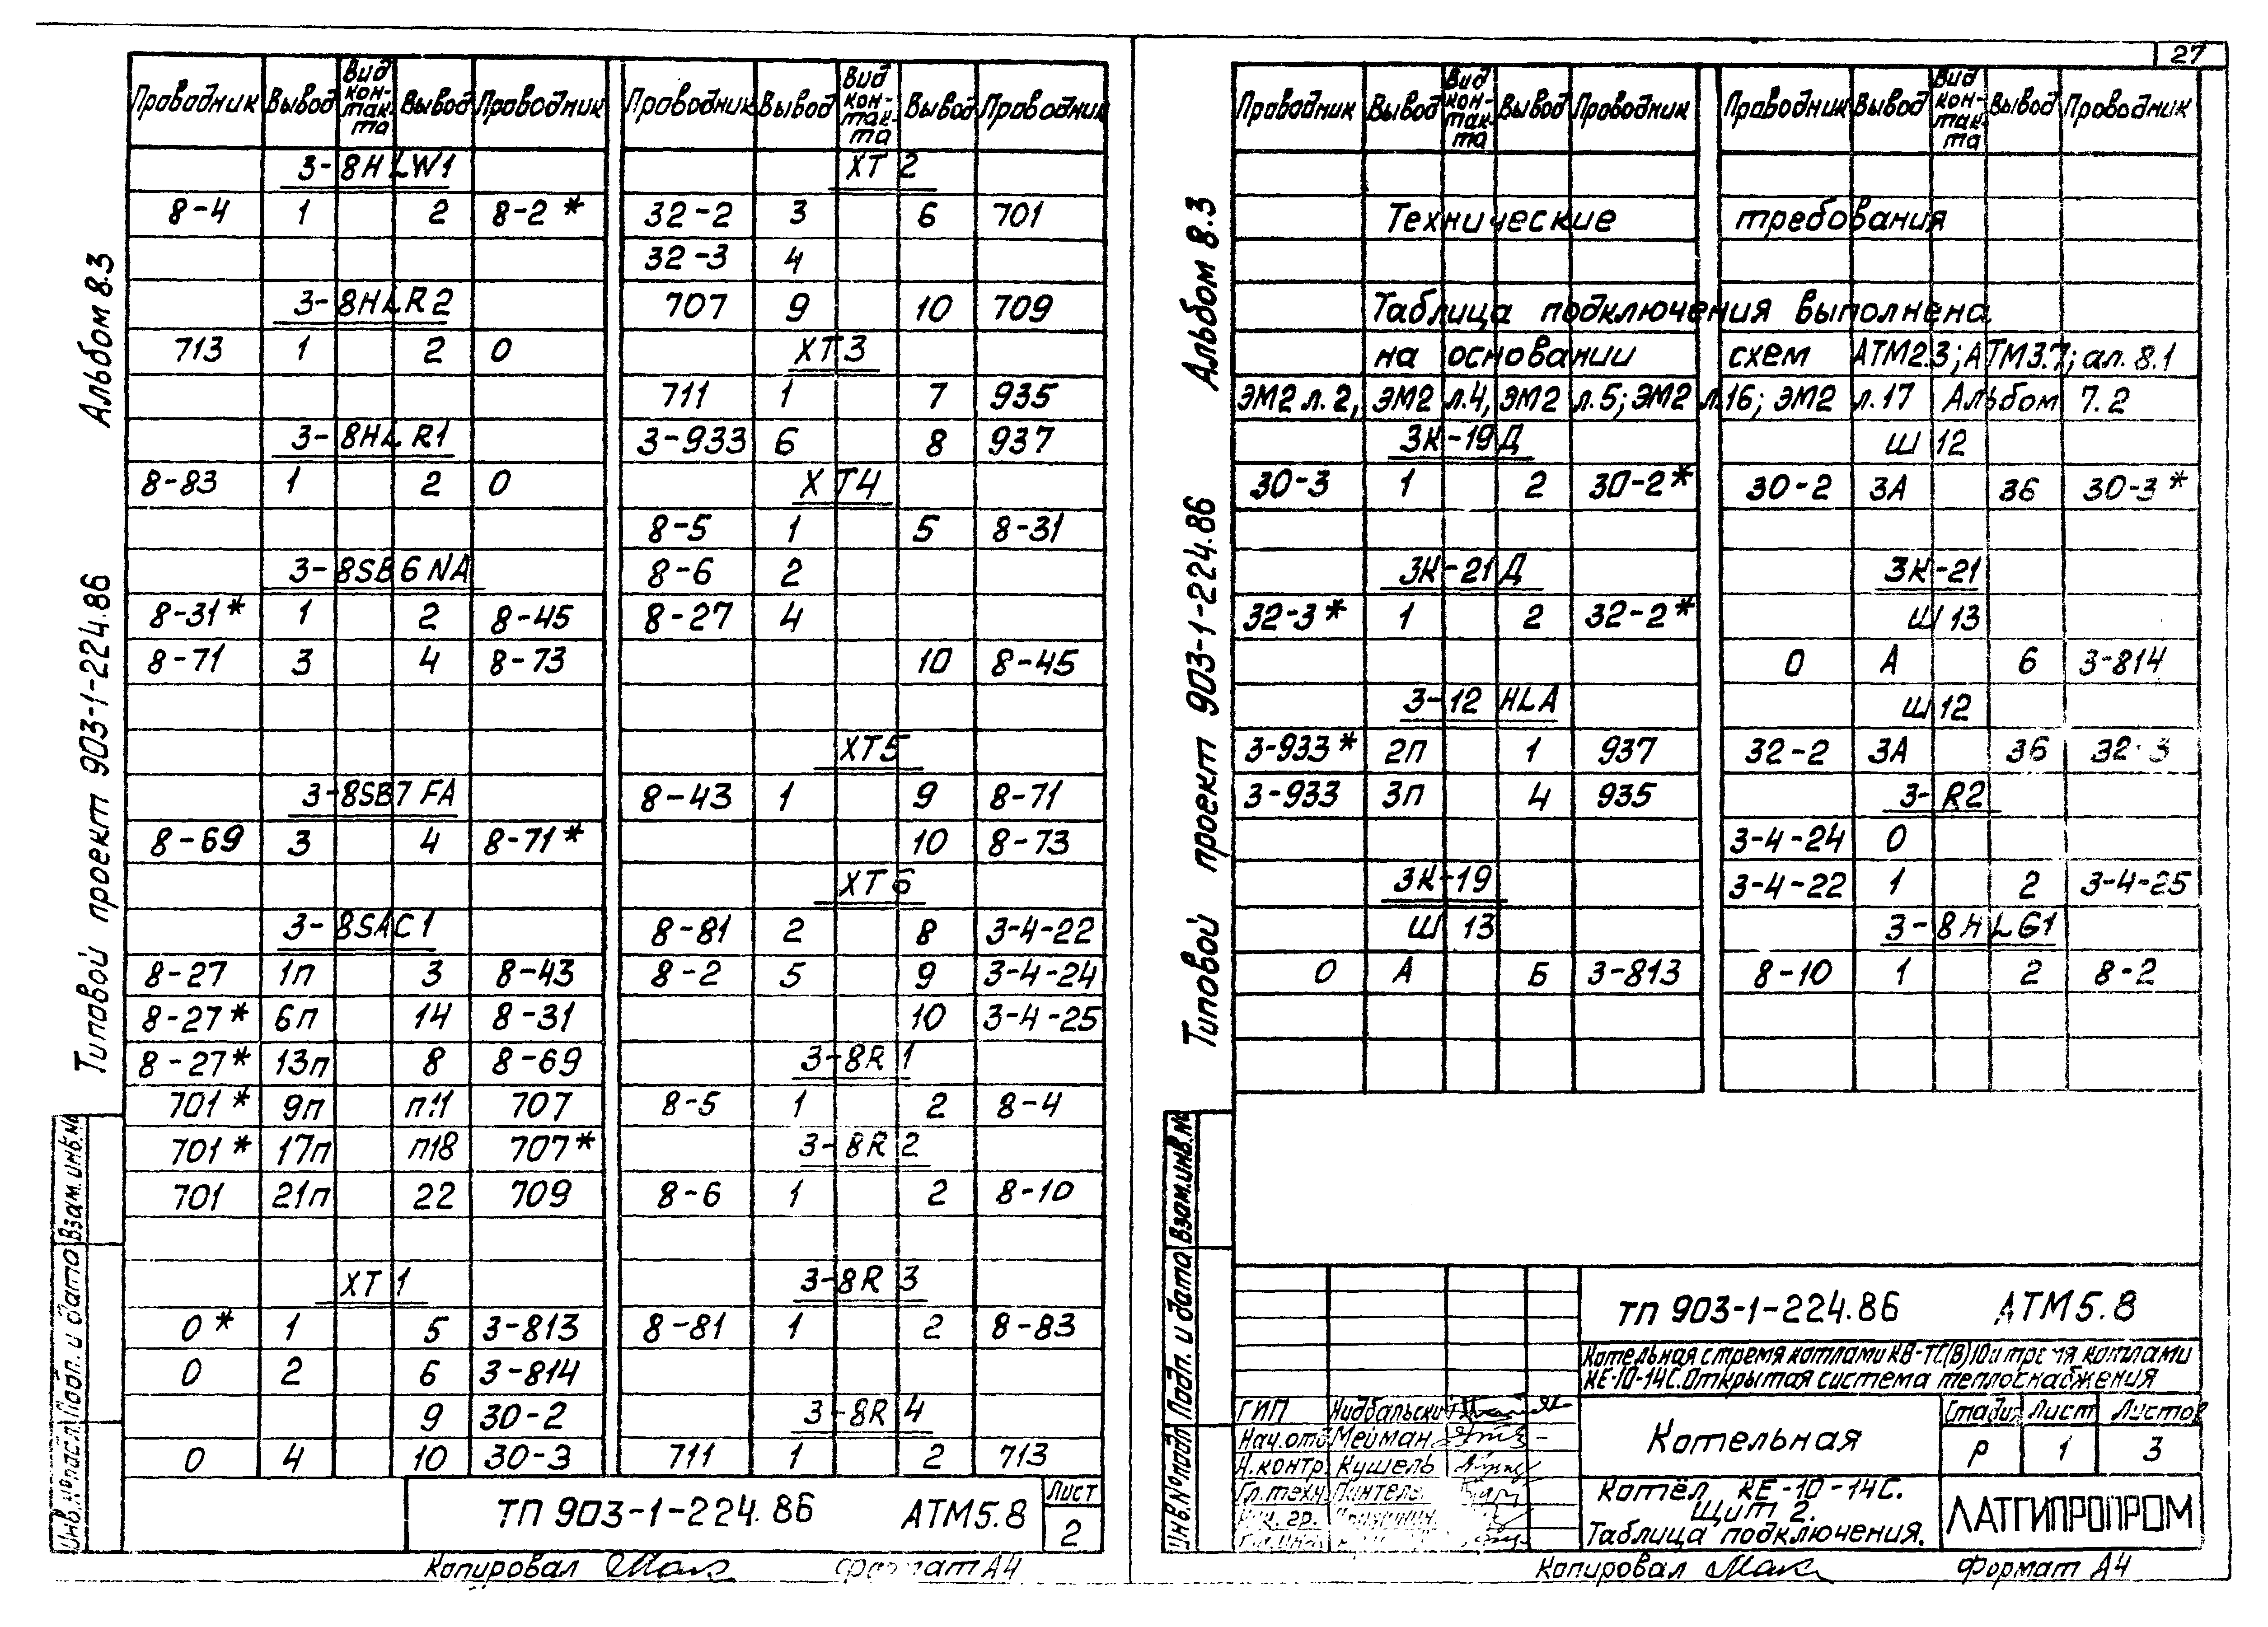 27
Альбом 8.3
Типовой проект 903-1-224.86
Взам.инв.№
Подп. и дата
Инв.№ подл.
Проводник Вывод Вид контакта Вывод Проводник
3-8HLW1
8-4 1 2 8-2*
3-8HLR2
713 1 2 0
3-8HLR1
8-83 1 2 0
3-8SB6NA
8-31* 1 2 8-45
8-71 3 4 8-73
3-8SB7FA
8-69 3 4 8-71*
3-8SAC1
8-27 1п 3 8-43
8-27* 6п 14 8-31
8-27* 13п 8 8-69
701* 9п п11 707
701* 17п п18 707*
701 21п 22 709
XT1
0* 1 5 3-813
0 2 6 3-814
9 30-2
0 4 10 30-3
Проводник Вывод Вид кон-так-та Вывод Проводник
XT2
32-2 3 6 701
32-3 4
707 9 10 709
XT3
711 1 7 935
3-933 6 8 937
XT4
8-5 1 5 8-31
8-6 2
8-27 4
10 8-45
XT5
8-43 1 9 8-71
10 8-73
XT6
8-81 2 8 3-4-22
8-2 5 9 3-4-24
10 3-4-25
3-8R1
8-5 1 2 8-4
3-8R2
8-6 1 2 8-10
3-8R3
8-81 1 2 8-83
3-8R4
711 1 2 713
ТП 903-1-224.86 АТМ5.8
Лист
2
Копировал
Формат А4
Альбом 8.3
Типовой проект 903-1-224.86
Взам.инв.№
Подп. и дата
Инв.№ подл.
Проводник Вывод Вид кон-так-та Вывод Проводник Проводник Вывод Вид кон-так-та Вывод Проводник
Технические требования
Таблица подключения выполнена
на основании схем АТМ2.3; АТМ3.7; ал. 8.1
ЭМ2 л.2, ЭМ2 л.4, ЭМ2 л.5; ЭМ2 л.16; ЭМ2 л.17 Альбом 7.2
3К-19Д
30-3 1 2 30-2*
3К-21Д
32-3* 1 2 32-2*
3-12 HLA
3-933* 2п 1 937
3-933 3п 4 935
3К-19
Ш 13
0 А Б 3-813
Ш 12
30-2 3А 36 30-3*
3К-21
Ш 13
0 А 6 3-814
Ш 12
32-2 3А 36 32-3
3-R2
3-4-24 0
3-4-22 1 2 3-4-25
3-8HLG1
8-10 1 2 8-2
ТП 903-1-224.86 АТМ5.8
Котельная с тремя котлами КВ-ТС(В)10 и тремя котлами
КЕ-10-14С. Открытая система теплоснабжения
ГИП Нидбальский
Нач.отд Мейман
Н.контр Кушель
Гл.техн
Котельная
Стадия Лист Листов
Р 1 3
Котёл КЕ-10-14С.
Щит 2.
Таблица подключения.
ЛАТГИПРОПРОМ
Копировал
Формат А4